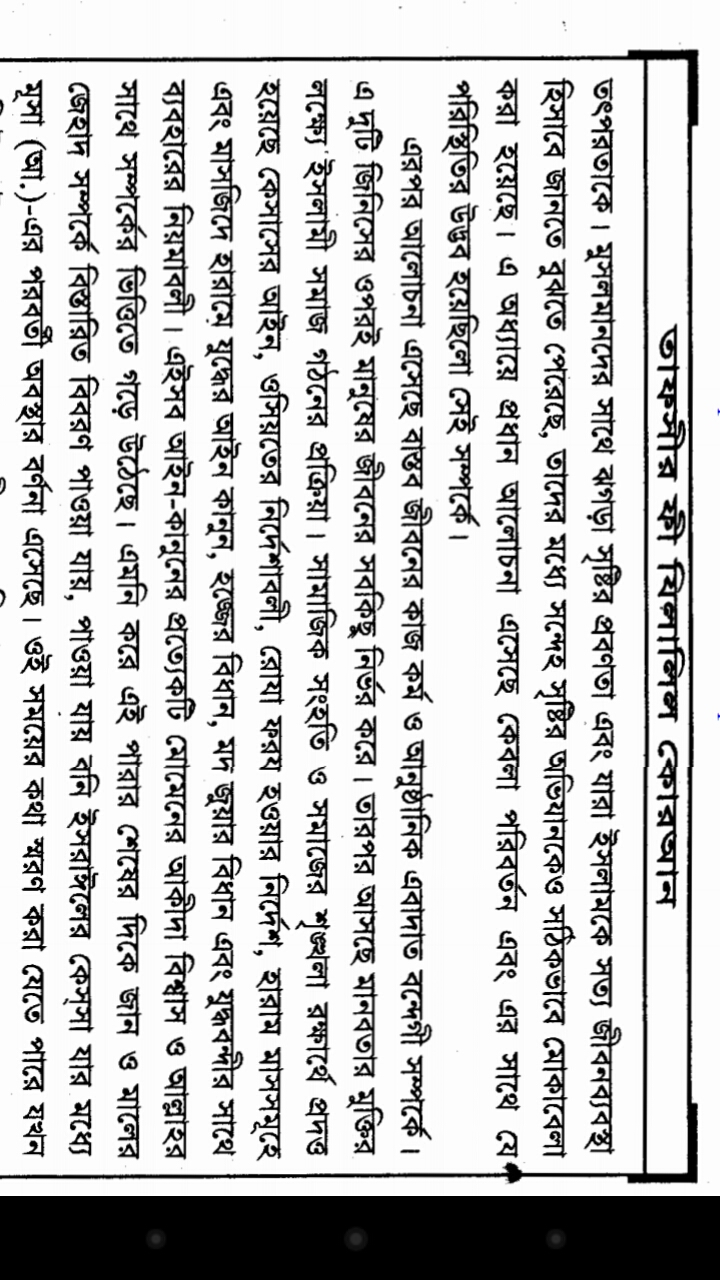 তাফসীর ফী যিলালিল কোরআন
তৎপরতাকে। মুসলমানদের সাথে ঝগড়া সৃষ্টির প্রবণতা এবং যারা ইসলামকে সত্য জীবনব্যবস্থা
হিসাবে জানতে বুঝতে পেরেছে, তাদের মধ্যে সন্দেহ সৃষ্টির অভিযানকেও সঠিকভাবে মোকাবেলা
করা হয়েছে। এ অধ্যায়ে প্রধান আলোচনা এসেছে কেবলা পরিবর্তন এবং এর সাথে যে
পরিস্থিতির উদ্ভব হয়েছিলো সেই সম্পর্কে।
এরপর আলোচনা এসেছে বাস্তব জীবনের কাজ কর্ম ও আনুষ্ঠানিক এবাদাত বন্দেগী সম্পর্কে।
এ দুটি জিনিসের ওপরই মানুষের জীবনের সবকিছু নির্ভর করে। তারপর আসছে মানবতার মুক্তির
লক্ষ্যে ইসলামী সমাজ গঠনের প্রক্রিয়া। সামাজিক সংহতি ও সমাজের শৃঙ্খলা রক্ষার্থে প্রদত্ত
হয়েছে কেসাসের আইন, ওসিয়তের নির্দেশাবলী, রোযা ফরয হওয়ার নির্দেশ, হারাম মাসসমূহে
এবং মাসজিদে হারামে যুদ্ধের আইন কানুন, হজ্জের বিধান, মদ জুয়ার বিধান এবং যুদ্ধবন্দীর সাথে
ব্যবহারের নিয়মাবলী। এইসব আইন-কানুনের প্রত্যেকটি মোমেনের আকীদা বিশ্বাস ও আল্লাহর
সাথে সম্পর্কের ভিত্তিতে গড়ে উঠেছে। এমনি করে এই পারার শেষের দিকে জান ও মালের
জেহাদ সম্পর্কে বিস্তারিত বিবরণ পাওয়া যায়, পাওয়া যায় বনি ইসরাঈলের কেস্সা যার মধ্যে
মূসা (আ.)-এর পরবর্তী অবস্থার বর্ণনা এসেছে। ওই সময়ের কথা স্মরণ করা যেতে পারে যখন